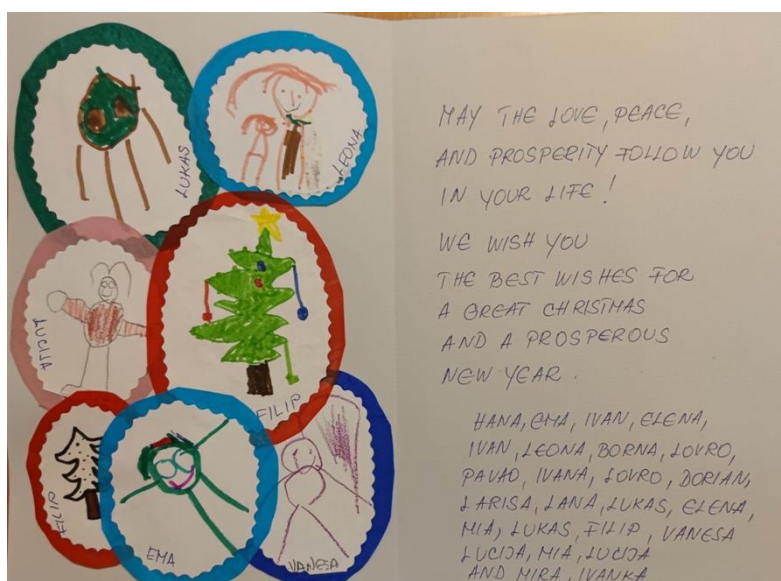 LUKAS
LEONA
LUCIJA
FILIP
FILIP
EMA
VANESA
MAY THE LOVE, PEACE,
AND PROSPERITY FOLLOW YOU
IN YOUR LIFE!
WE WISH YOU
THE BEST WISHES FOR
A GREAT CHRISTMAS
AND A PROSPEROUS
NEW YEAR.
HANA, EMA, IVAN, ELENA,
IVAN, LEONA, BORNA, LOVRO,
PAVAO, IVANA, LOVRO, DORIAN,
LARISA, LANA, LUKAS, ELENA,
MIA, LUKAS, FILIP, VANESA
LUCIJA, MIA, LUCIJA
AND MIRA, IVANKA